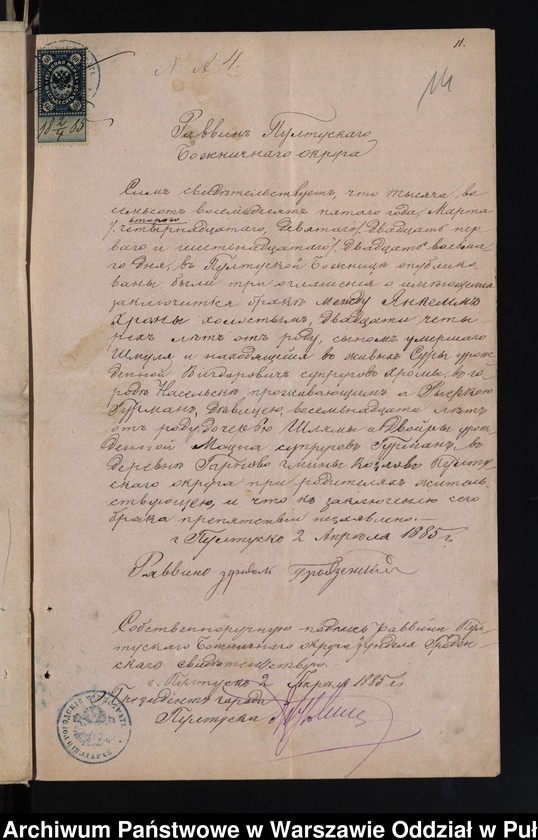 11.
N A 4.
14
18 2/4 85
Раввинъ Пултускаго
Божничнаго округа
Симъ свидѣтельствуетъ, что тысяча во
семьсотъ восемьдесятъ пятаго года, Марта
второго
/: четырнадцатаго, Девятаго/: Двадцать пер
ваго и шестнадцатаго/: Двадцать восьма
го Дня, въ Пултуской Божницѣ опублико
ваны были три оглашенія о имѣющемъ
заключится бракѣ между Янкелемъ
Хроны холостымъ, двадцати четы
рехъ лѣтъ отъ роду, сыномъ умершаго
Шмуля и находящейся въ живыхъ Суры урож
денной Вигдоровичъ супруговъ Хрома, въ го
родѣ Насельскѣ проживающимъ а Рыфкою
Гурманъ, дѣвицею, восемьнадцати лѣтъ
отъ роду дочерью Шлямы и Двойры урож
денной супруговъ Гурманъ, въ
деревнѣ Гарново гмины Козлово Пулту
скаго округа при родителяхъ житель
ствующею, и что къ заключенію сего
брака препятствій незаявлено. —
г. Пултускъ 2 Апрѣля 1885 г.
Раввинъ
Собственноручную подпись раввина Пул
тускаго Божничнаго округа
скаго свидѣтельствую.
г. Пултускъ 2 Апрѣля 1885 г.
Президентъ города
Пултуска
Archiwum Państwowe w Warszawie Oddział w Puł